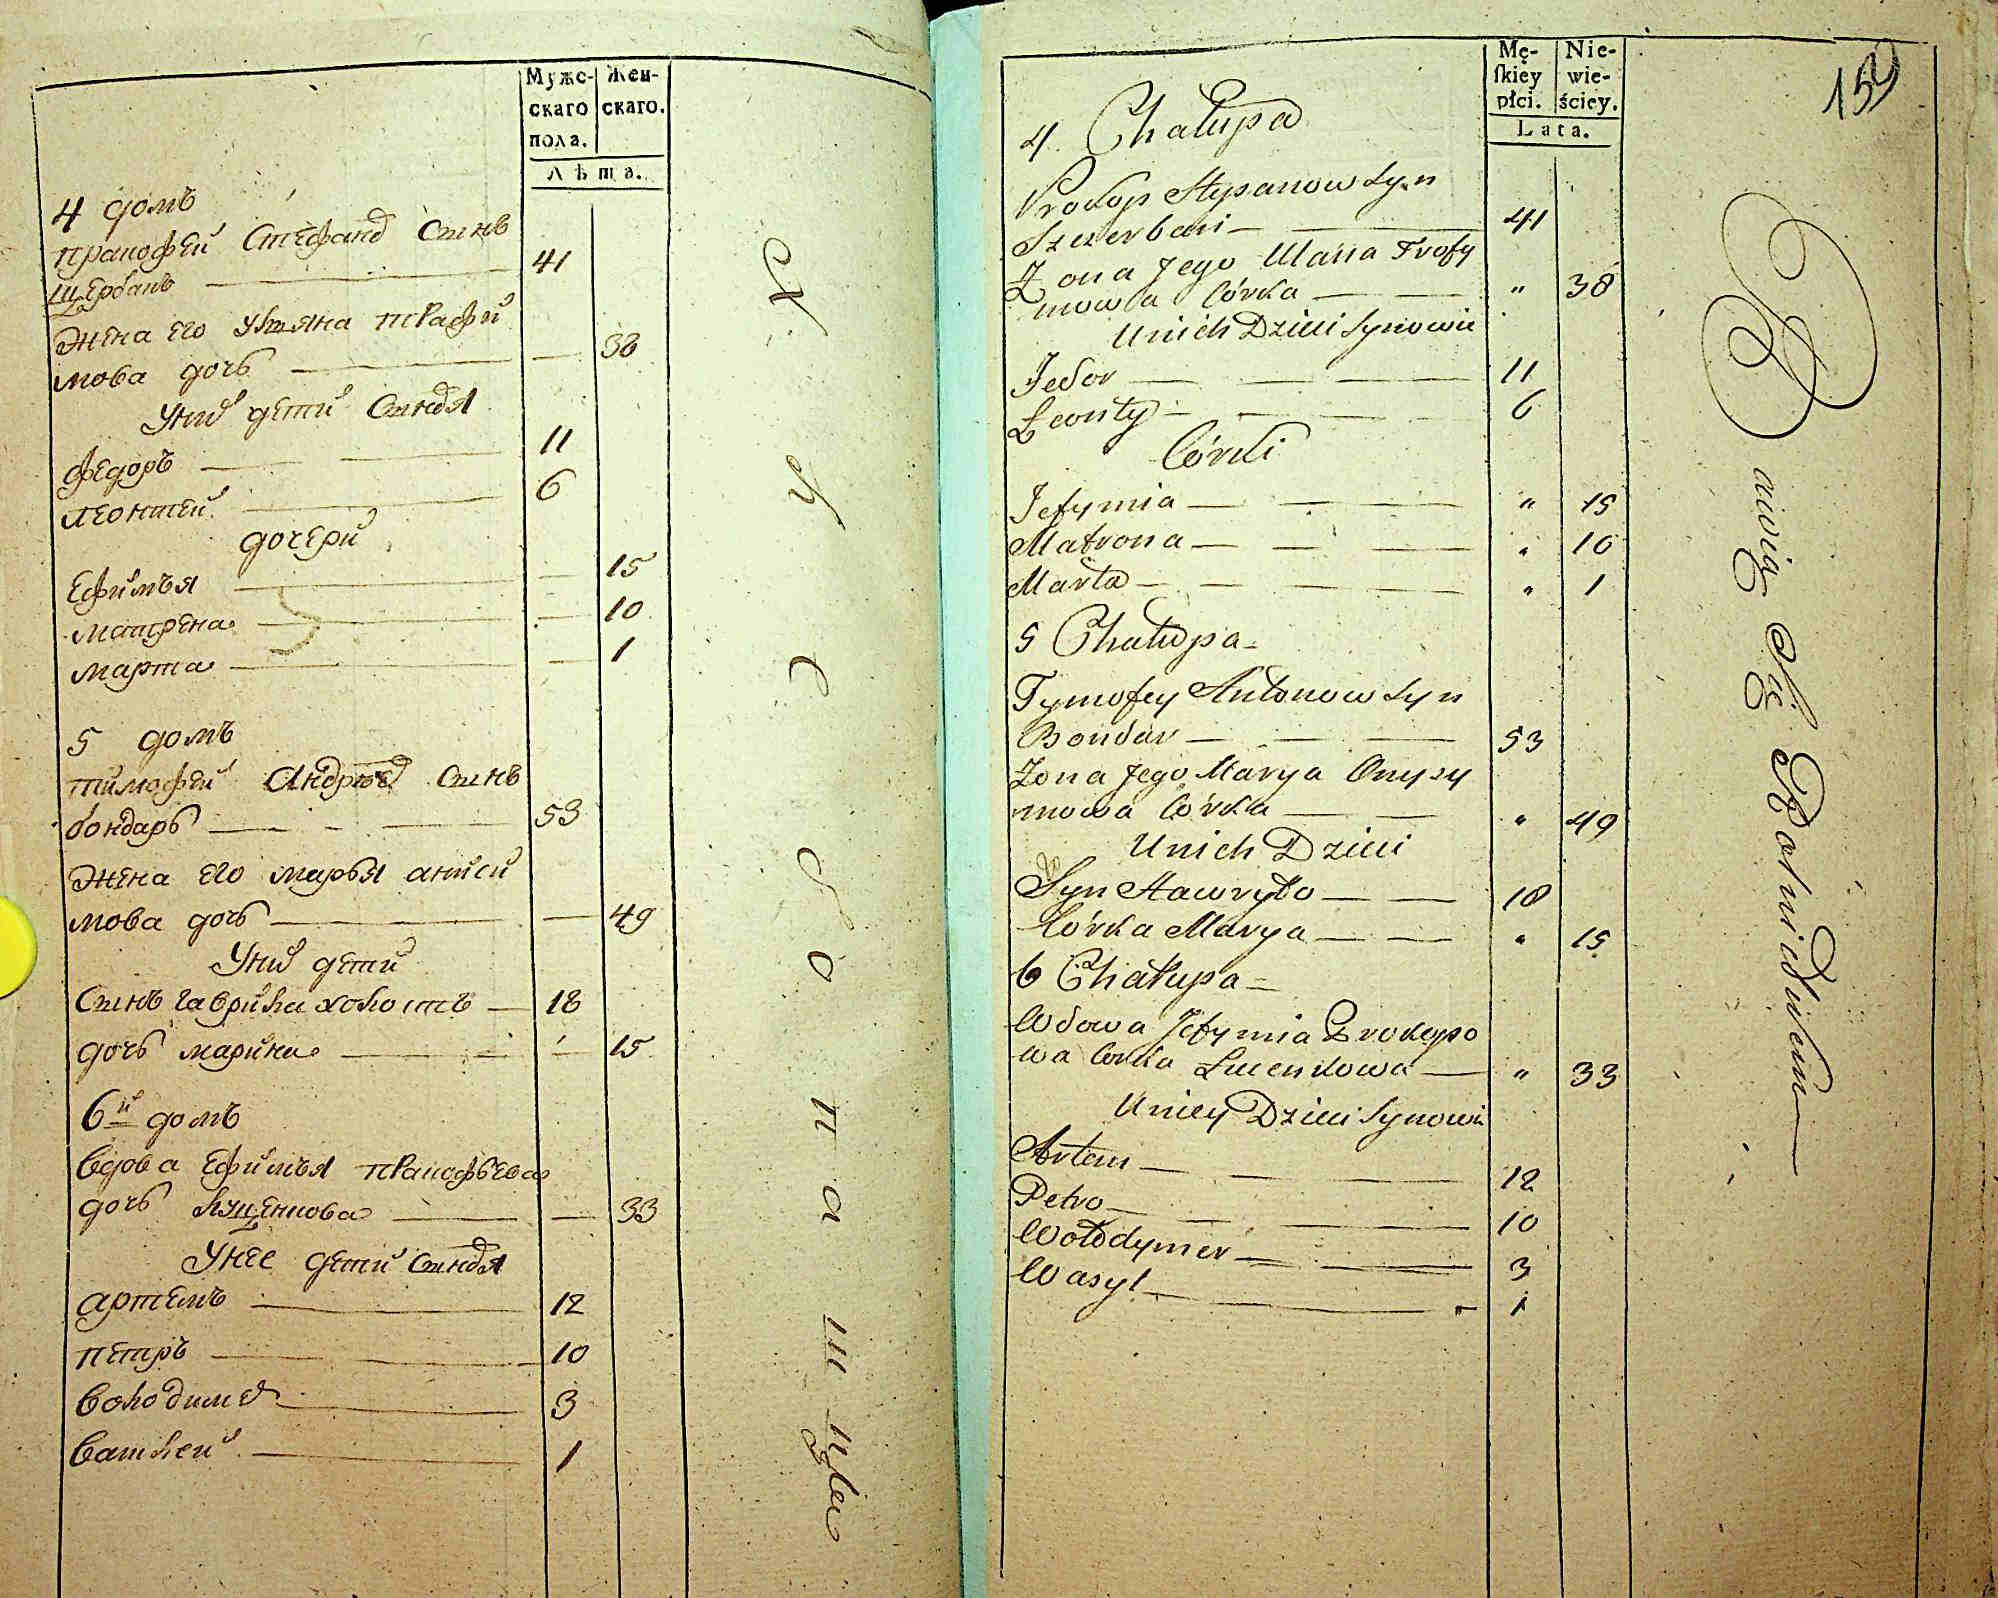 Мужс-
скаго
пола.
Жен-
скаго.
Лѣта.
4 домъ
прапофей Стефанд Синъ
щербанъ 41
жена его уляна трафи
мова дочь 38
уних дети Синдя
федоръ 11
леонтей 6
дочери
Ефимъя 15
матрена 10
марта 1
5 домъ
тимофей Андреев Синъ
бондарь 53
жена его марья аниси
мова дочь 49
Уних дети
Синъ гаврила холостъ 18
дочь марина 15
6й домъ
вдова Ефимья прапофьева
дочь луценкова 33
Унее дети Синдя
артемъ 12
петръ 10
володимер 3
василей 1
159
Mę-
ſkiey
płci.
Nie-
wie-
ściey.
Lata.
4 Chałupa
Prokop Stypanow Syn
Szczerban 41
Żona Jego Ulana Trofy
mowa Córka " 38
Unich Dzieci Synowie
Fedor 11
Leonty 6
Córki
Jefymia " 15
Matrona " 10
Marta " 1
5 Chałupa
Tymofey Antonow Syn
Bondar 53
Żona Jego Marya Onysy
mowa Córka " 49
Unich Dzieci
Syn Hawryło 18
Córka Marya " 15
6 Chałupa
Wdowa Jefymia Prokopo
wa Corka Lucenkowa " 33
Uniey Dzieci Synowie
Artem 12
Petro 10
Wołodymer 3
Wasyl 1
Bawią Się Rolnictwem